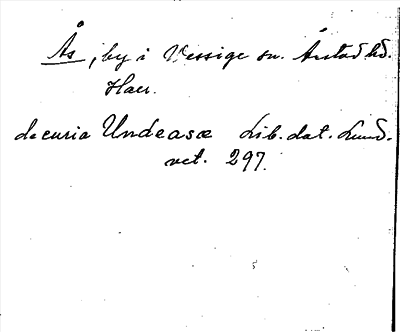 Ås, by i Vessige sn. Årstad hd.
Hall.
de curia Undeasæ Lib. dat. Lund.
vet. 297.